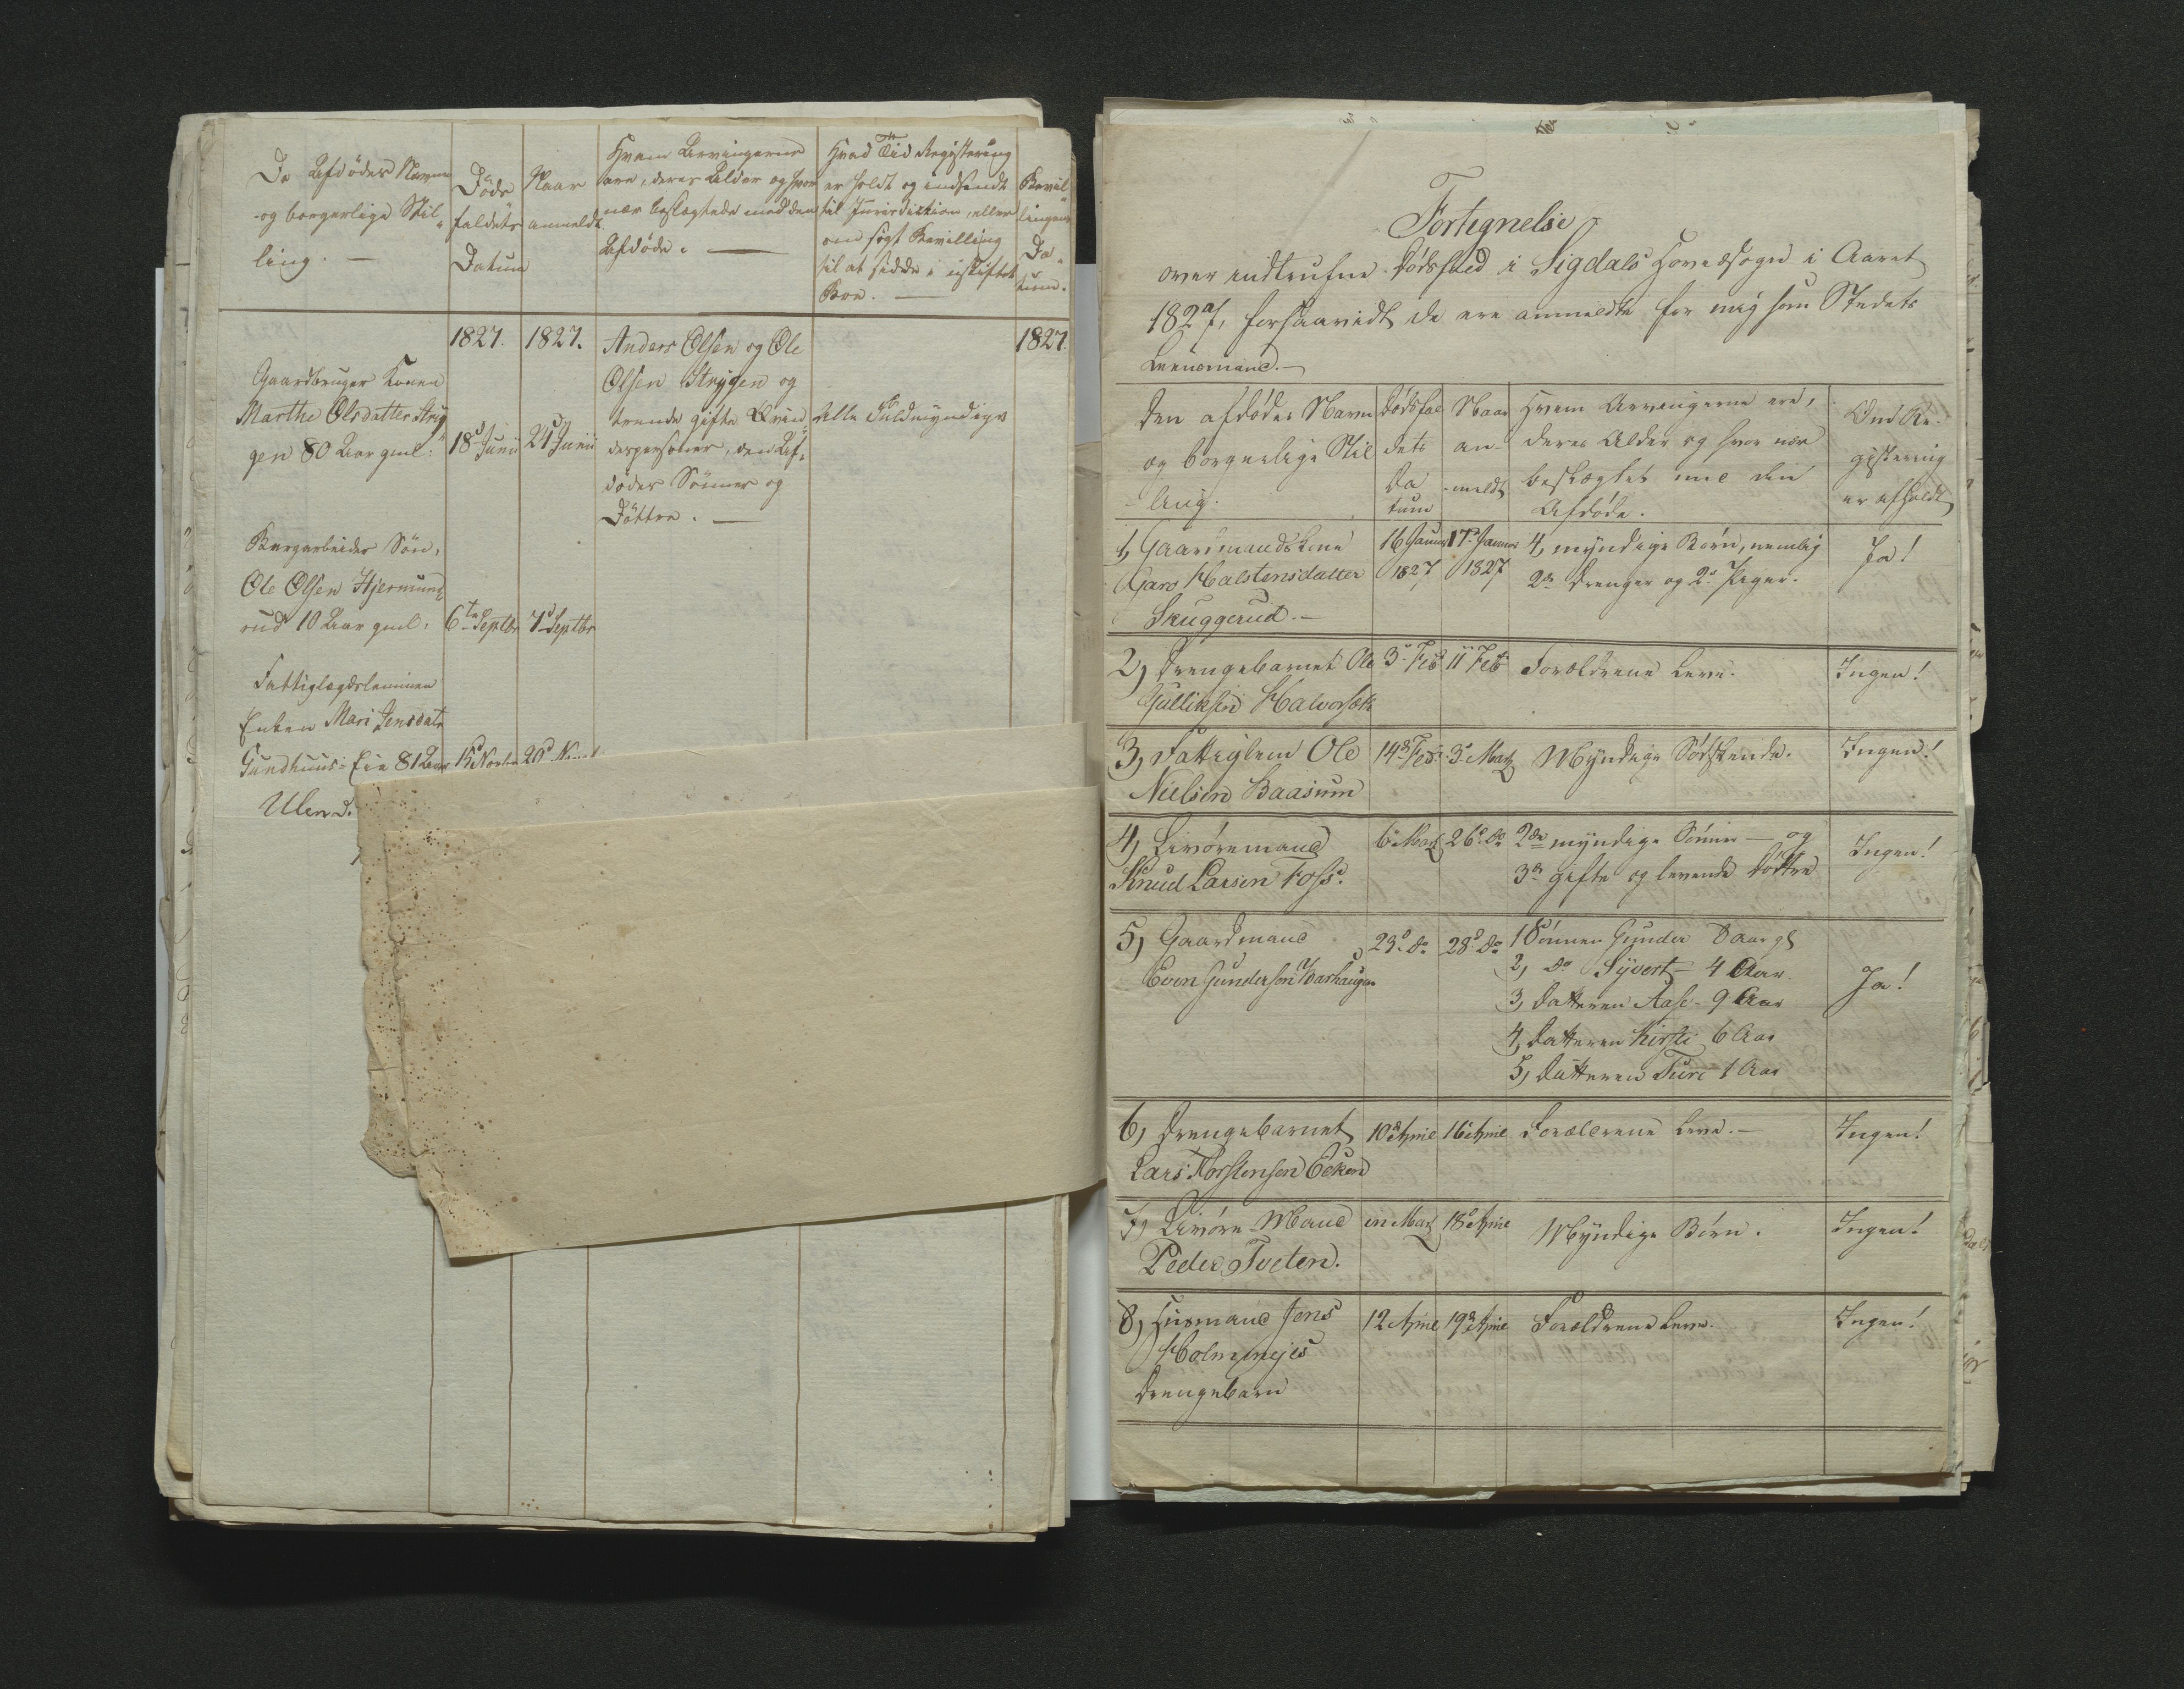 De Afdødes Navne
og borgerlige Stil-
ling. —
Døds
faldets
Datum
Naar
anmeldt
Hvem Arvingerne
ere, deres Alder og hvor
nær beslægtede med den
Afdøde. —
Hvad Tid Registering
er holdt og indsendt
til Jurisdiction, eller
om søgt Bevilling
til at sidde i uskiftet
Boe. —
Bevil
lingens
Da-
tum.
1827.
1827.
1827.
Gaardbruger Konen
Marthe Olsdatter Stry
gen 80 Aar gml:
18d Junii
21d Junii
Anders Olsen og Ole
Olsen Strygen og
trende gifte Qvin-
despersoner, den Af-
dødes Sønner og
Døttre. —
Alle Fuldmyndige
Bergarbeider Søn,
Ole Olsen Hjermund
rud 10 Aar gml.
6te Septbr
7d Septbr
Fattiglægdslemmen
Enken Mari Jensdatr
Sundhuus-Eie 81 Aar
15d Novbr
20d
Ulen d.
Fortegnelse
over indtrufne Dødsfald i Sigdals Hovedsogn i Aaret
1827, forsaavidt de ere anmeldte for mig som Stedets
Lensmand. —
Den afdødes Navn
og borgerlige Stil
ling.
Dødsfal
dets
Da
tum
Naar
an-
meldt
Hvem Arvingerne ere,
deres Alder og hvor nær
beslægtet med den
Afdøde.
Om Re-
gistering
er afholdt
1, Gaardmandskone
Kari Halstensdatter
Skuggerud. —
16 Januar
1827
17d Januar
1827
4, myndige Børn, nemlig
2de Drenger og 2de Piger.
Ja!
2, Drengebarnet Ole
Gulliksen Halvorsæt
3d Feb
11 Feb
Forældrene Leve.
Ingen!
3, Fattiglem Ole
Nielsen Baasum
14d Feb.
3d Marz
Myndige Sødskende.
Ingen!
4, Livøremand
Knud Larsen Foss.
6d Marz
26d do
2de myndige Sønner — og
3de gifte og levende Døttre
Ingen!
5, Gaardmand
Even Gundersen Varhaugen
23d do
28d do
1 Sønnen Gunder 8 aar gl
2, do Syvert — 4 Aar
3, Datteren Aase — 9 Aar
4, Datteren Kirsti 6 Aar
5, Datteren Turi 1 Aar
Ja!
6, Drengebarnet
Lars Torstensen Eeken
10d April
16d April
Forældrene Leve. —
Ingen!
7, Livøre Mand
Peder Tveten.
in Marz
18d April
Myndige Børn.
Ingen!
8, Husmand Jens
Holmmejes
Drengebarn
12 April
19d April
Forældrene Leve.
Ingen!